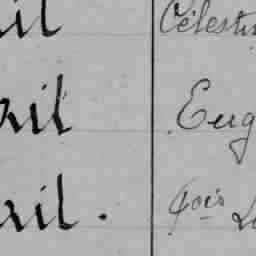 il Célestin
ril Eug
ril. fçois L